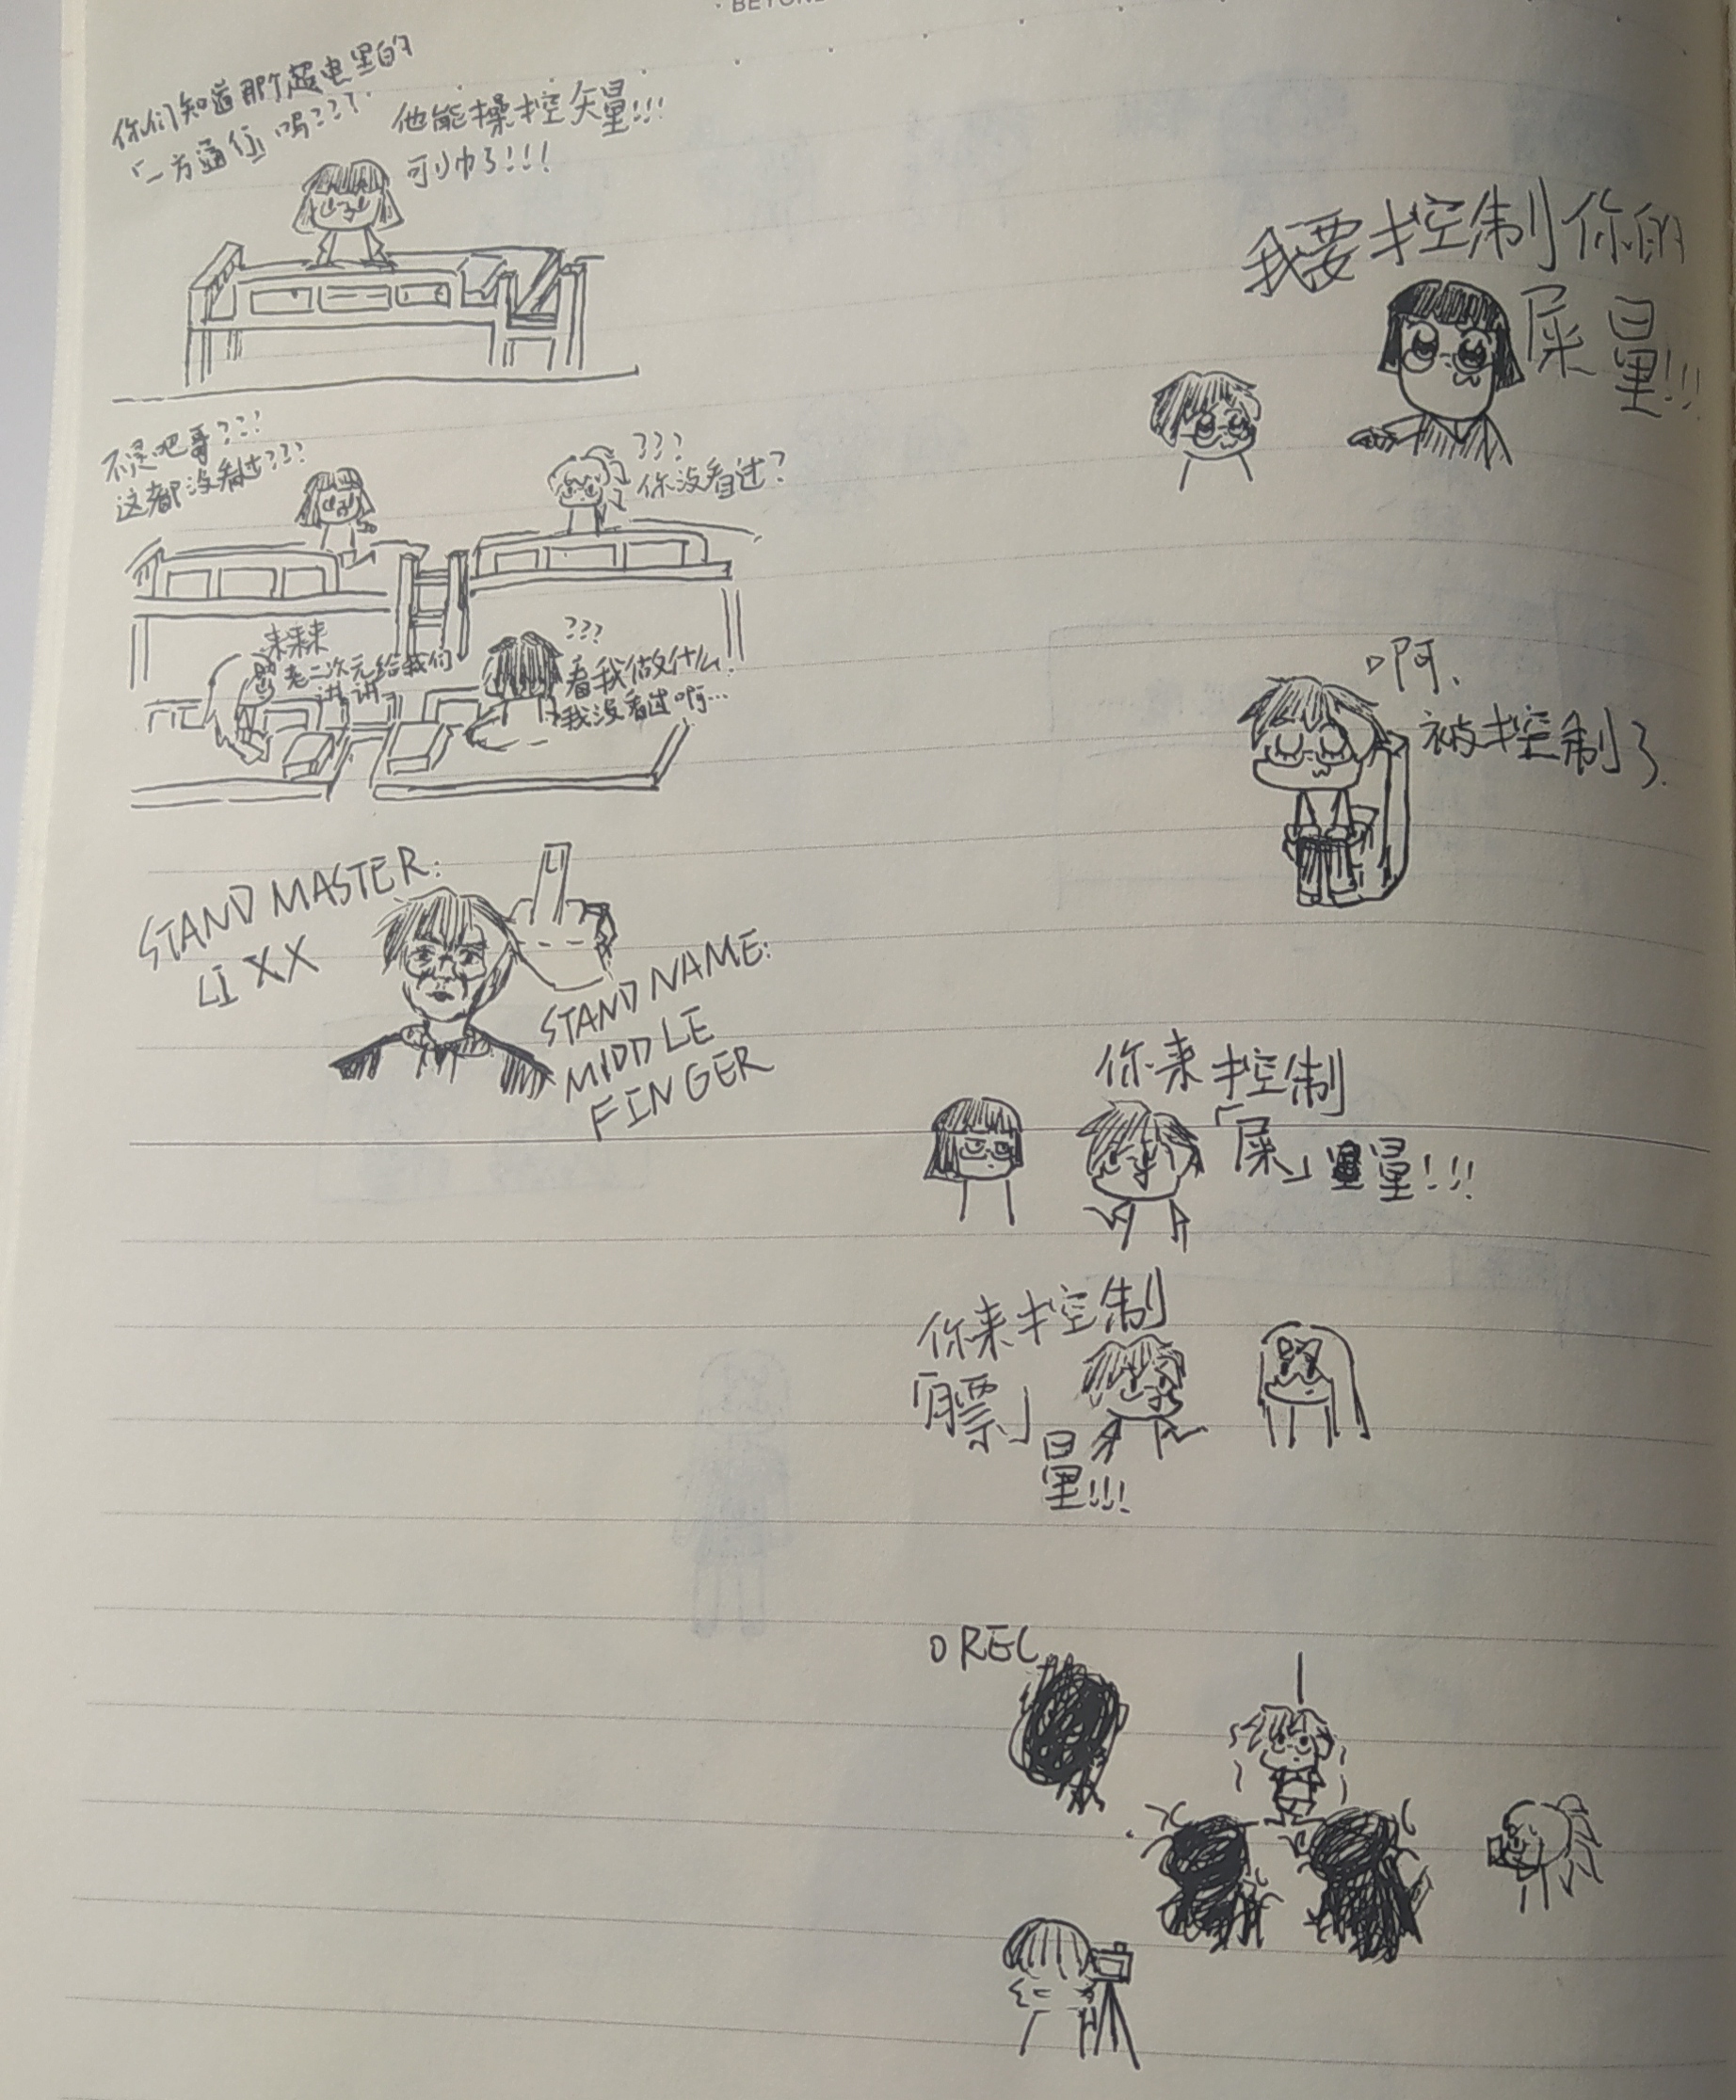 · BEYOND
你们知道那个超电里的
「一方通行」吗???
他能操控矢量!!!
可小巾了!!!
不是吧哥???
这都没看过???
???
你没看过?
来来来
老二次元给我们
讲讲
???
看我做什么.
我没看过啊…
STAND MASTER:
LI XX
LI
STAND NAME:
MIDDLE
FINGER
我要控制你的
屎量!!!
啊、
被控制了.
你来控制
「屎」量!!!
你来控制
「膘」
量!!!
REC